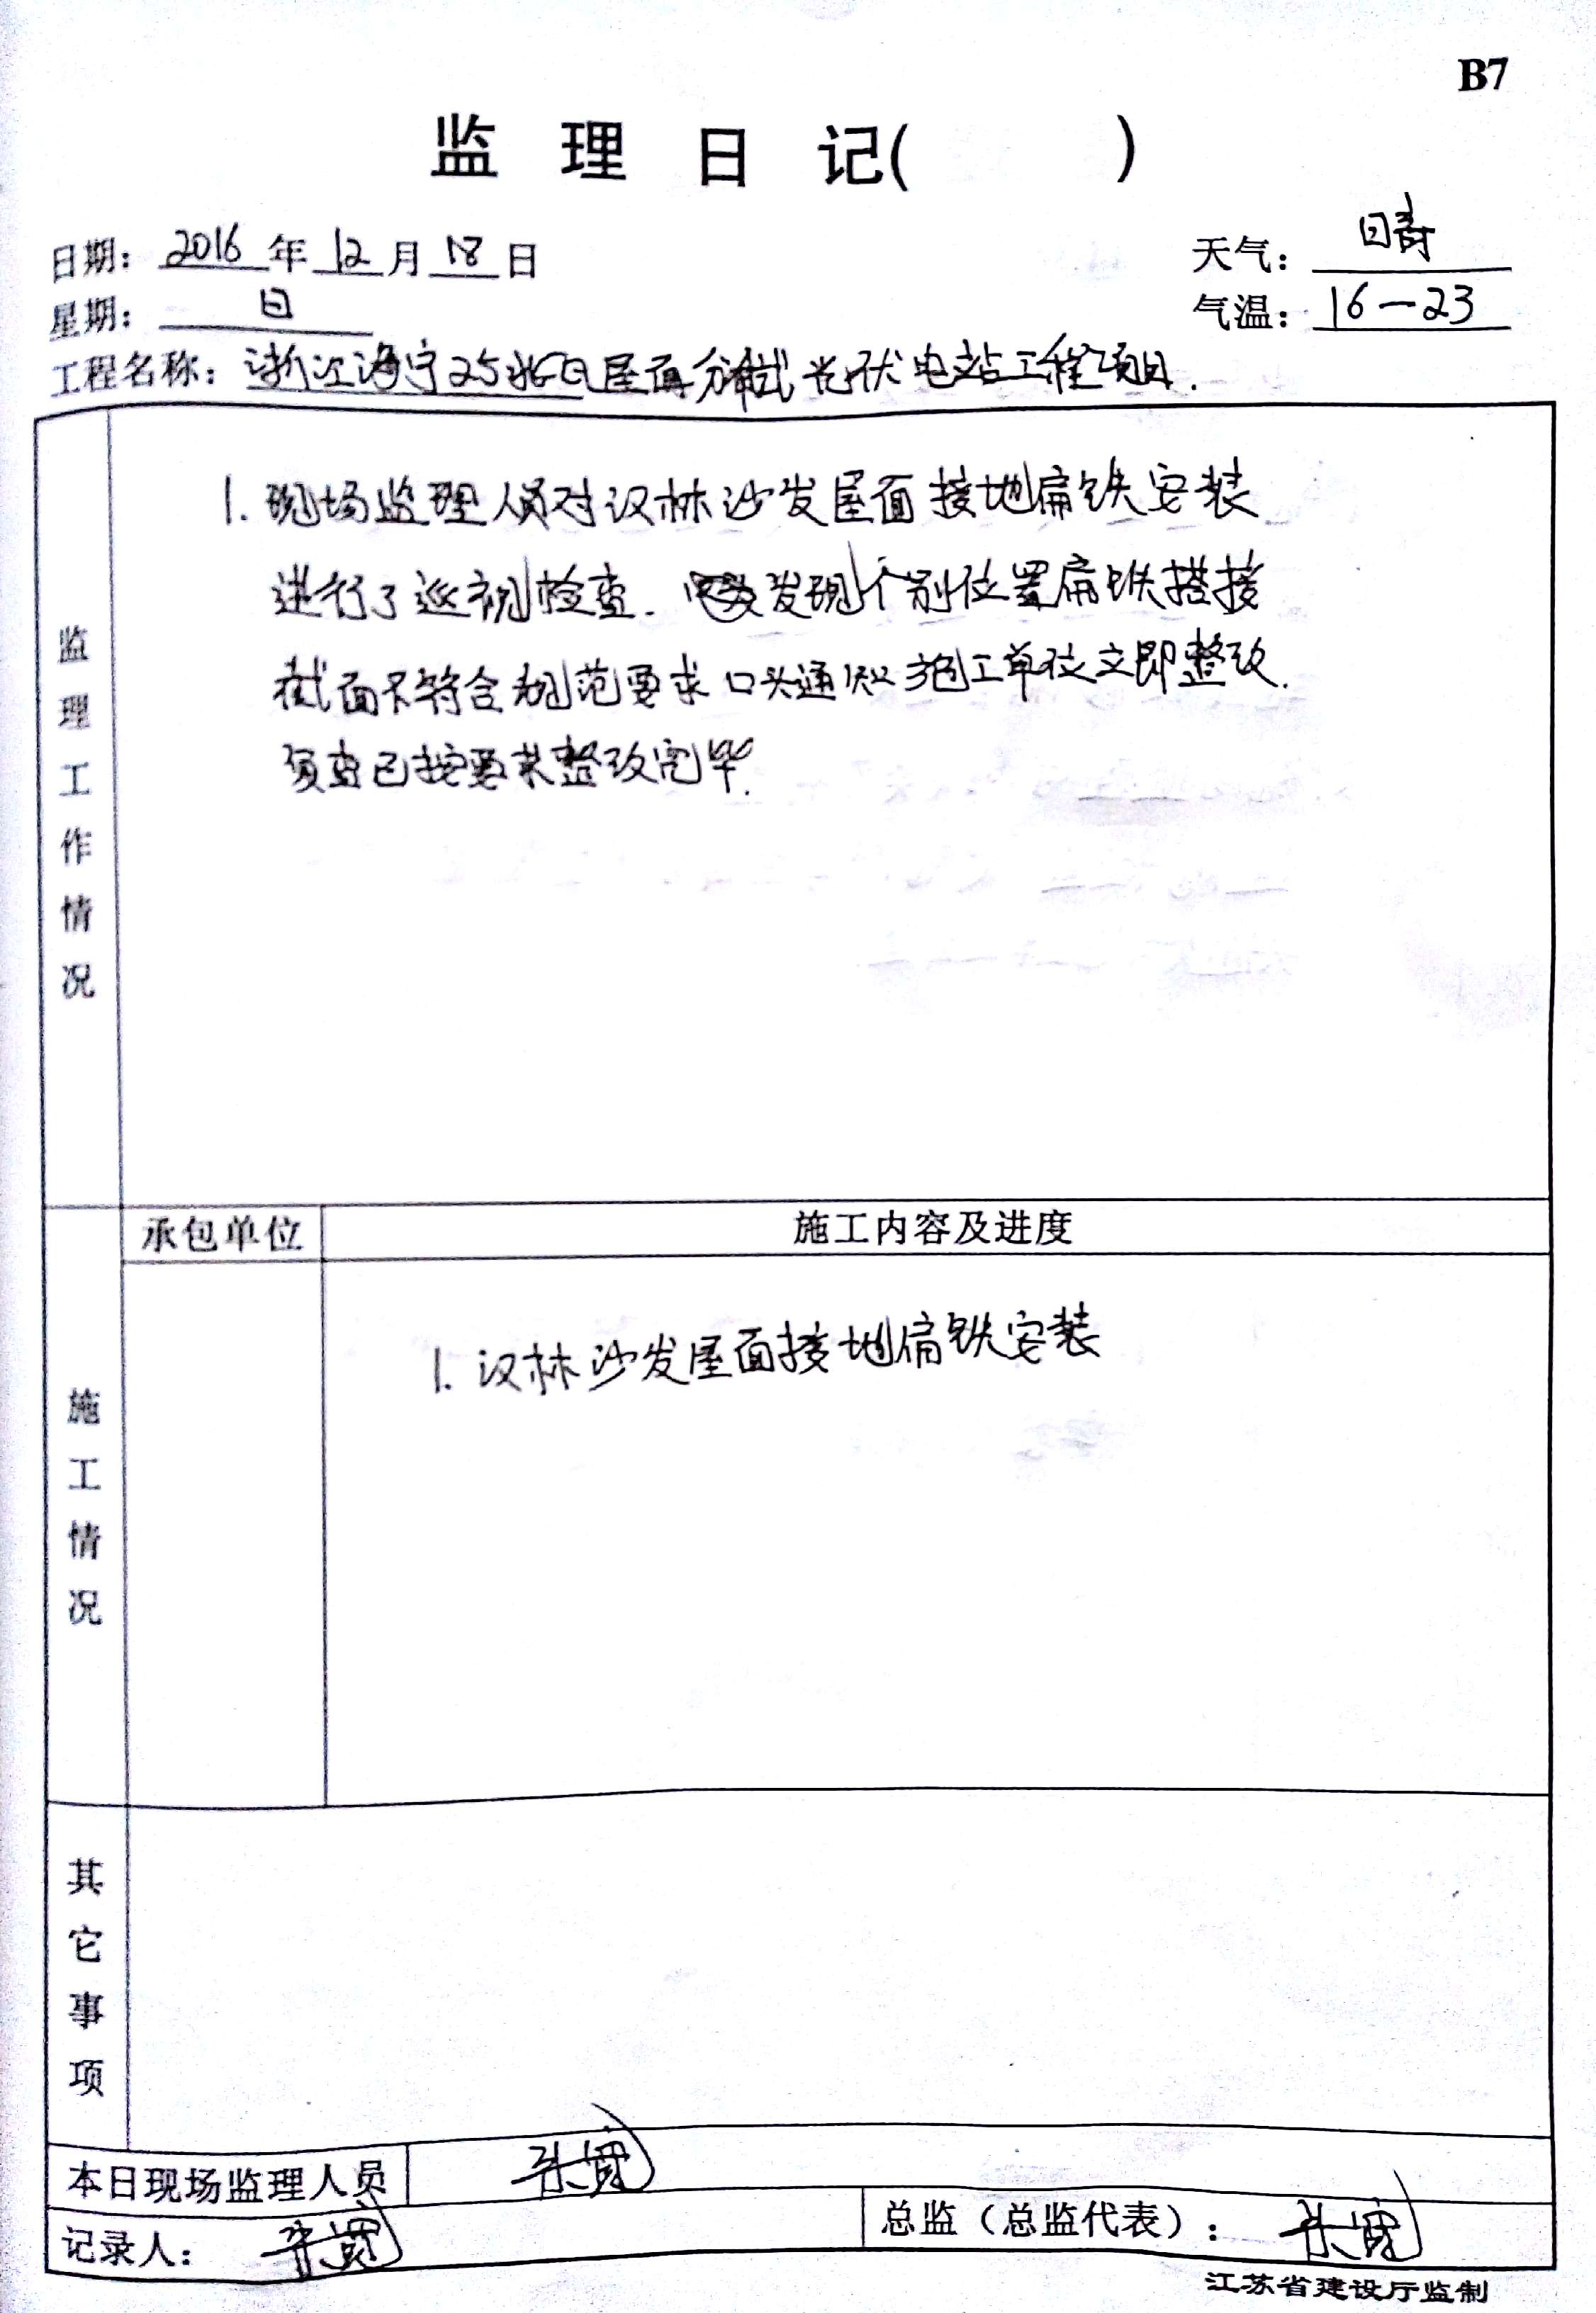 B7
监 理 日 记( )
日期: 2016 年 12 月 18 日
天气: 晴
星期: 日
气温: 16—23
工程名称: 浙江海宁25兆瓦屋面分布式光伏电站工程项目.
监理工作情况
1. 现场监理人员对汉林沙发屋面接地扁铁安装
进行了巡视检查. 发现个别位置扁铁搭接
截面不符合规范要求口头通知施工单位立即整改.
复查已按要求整改完毕.
承包单位 施工内容及进度
施工情况
1. 汉林沙发屋面接地扁铁安装
其它事项
本日现场监理人员
记录人:
总监(总监代表):
江苏省建设厅监制